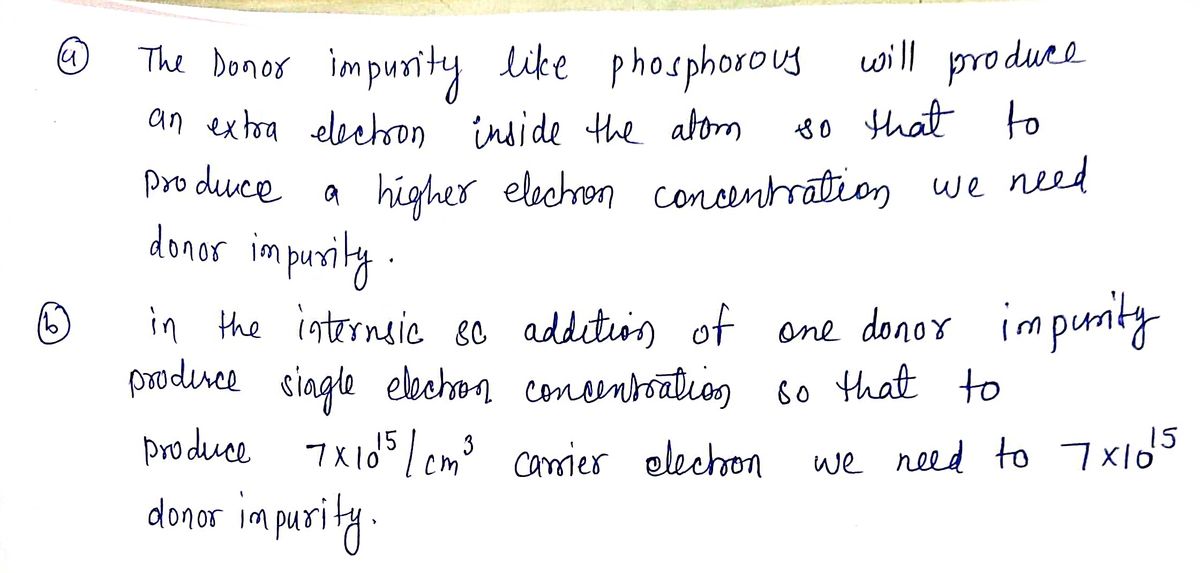 (a) The Donor impurity like phosphorous will produce
an extra electron inside the atom so that to
produce a higher electron concentration we need
donor impurity.
(b) in the internsic sc addition of one donor impurity
produce single electron concentration so that to
produce 7×10¹⁵/cm³ carrier electron we need to 7×10¹⁵
donor impurity.